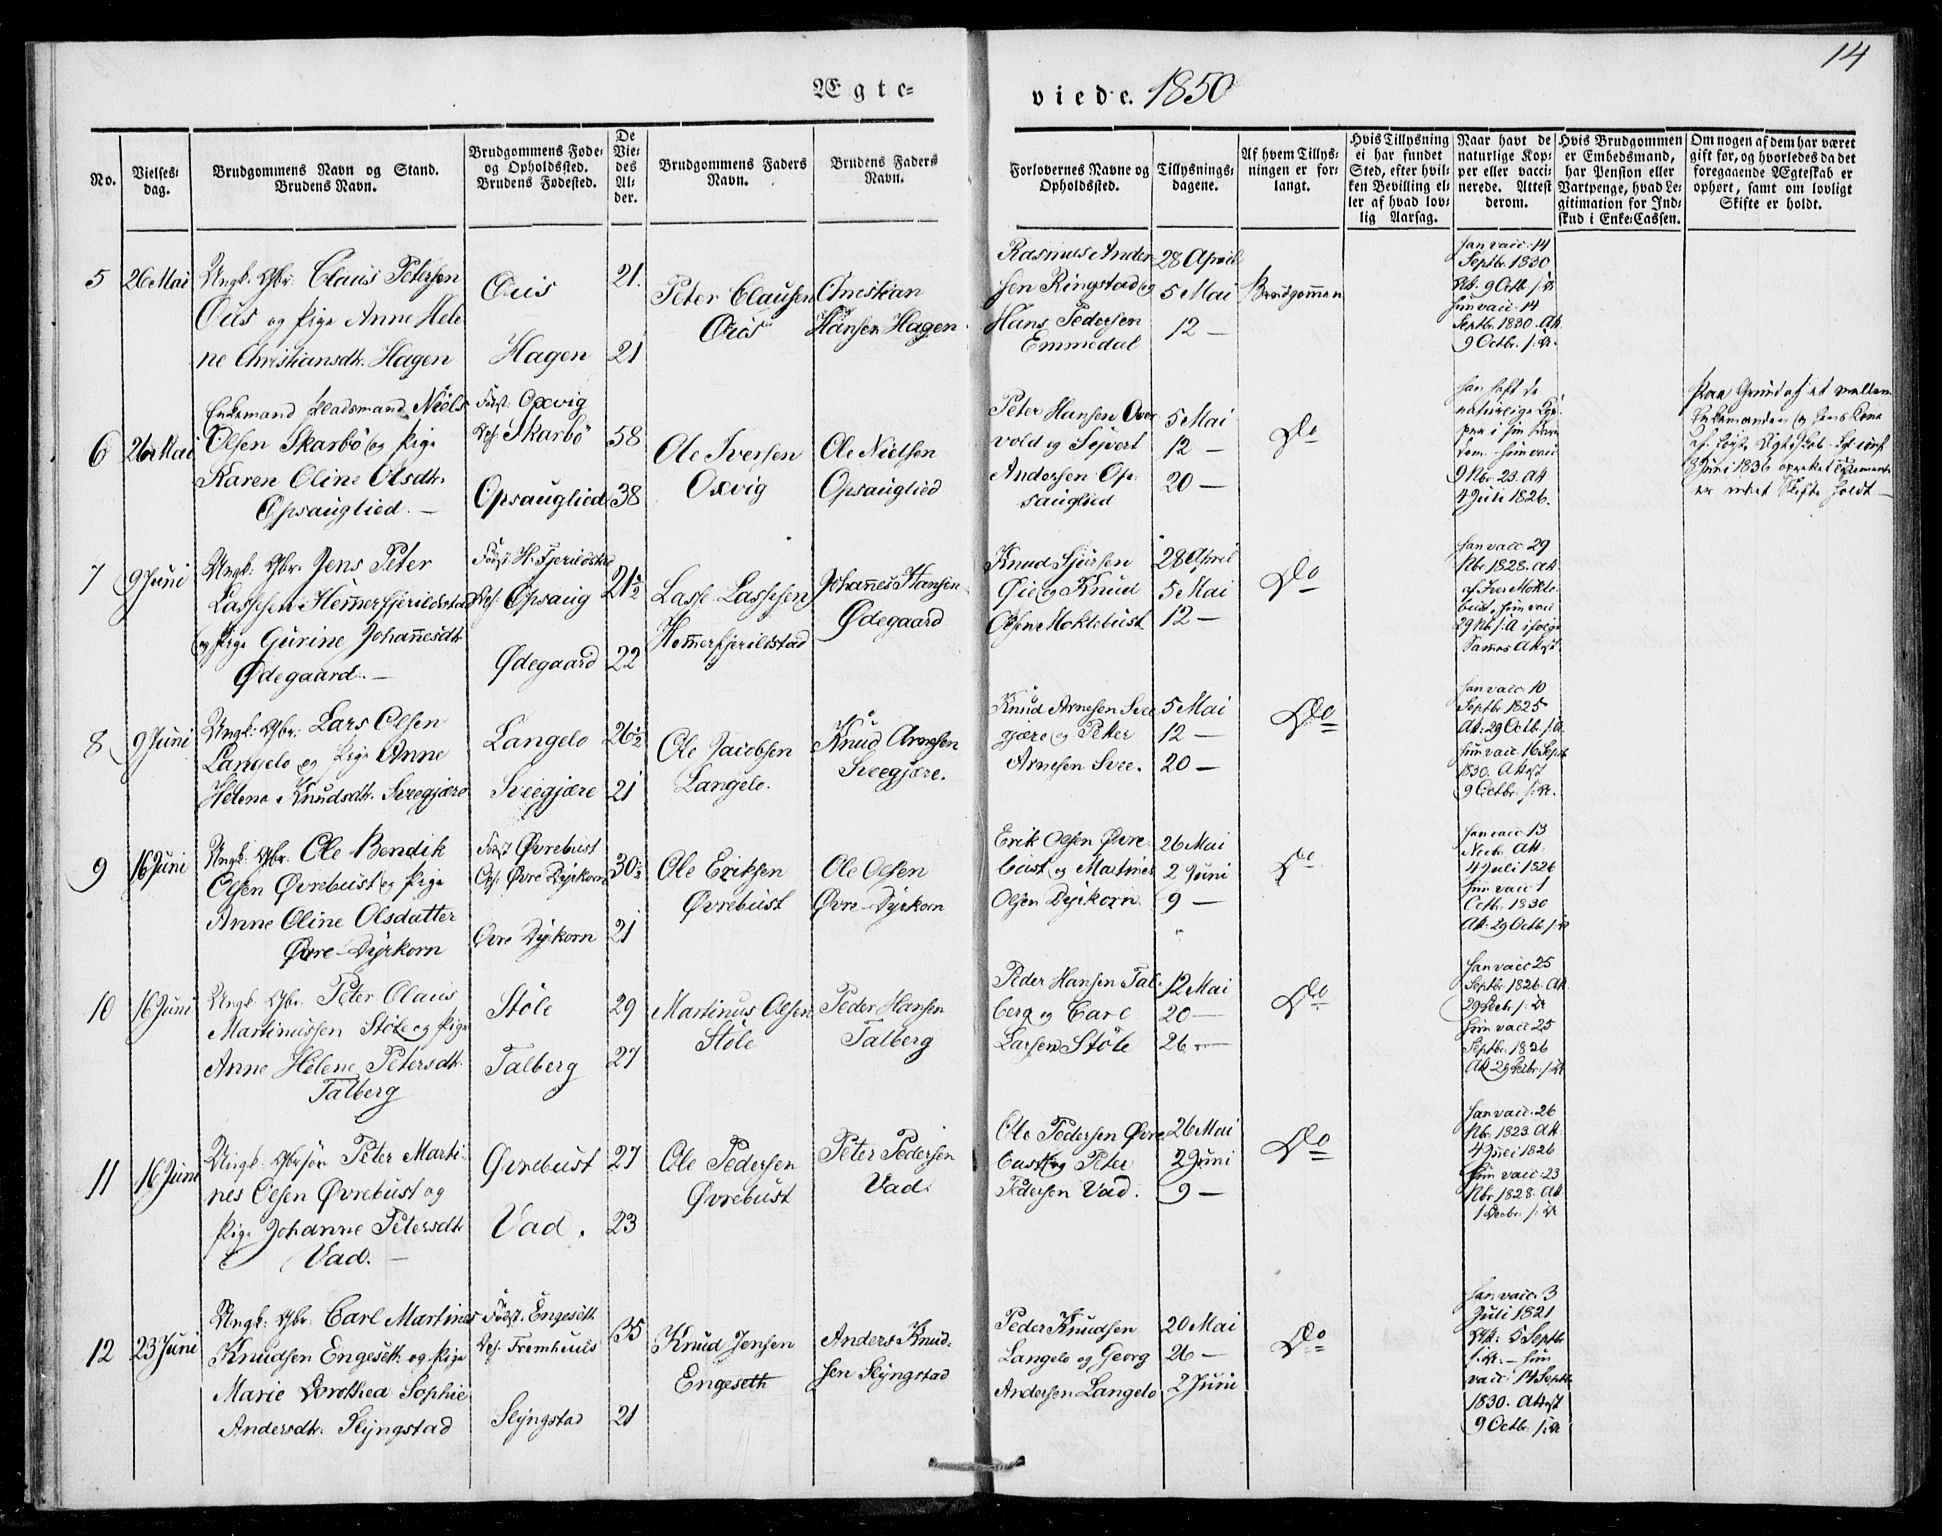 14
Ægte-
viede. 1850
No.
Vielses-
dag.
Brudgommens Navn og Stand.
Brudens Navn.
Brudgommens Føde-
og Opholdssted.
Brudens Fødested.
De
Vie-
des
Al-
der.
Brudgommens Faders
Navn.
Brudens Faders
Navn.
Forlovernes Navne og
Opholdssted.
Tillysnings-
dagene.
Af hvem Tillys-
ningen er for-
langt.
Hvis Tillysning
ei har fundet
Sted, efter hvil-
ken Bevilling el-
ler af hvad lov-
lig Aarsag.
Naar havt de
naturlige Kop-
per eller vacci-
nerede. Attest
derom.
Hvis Brudgommen
er Embedsmand,
har Pension eller
Vartpenge, hvad Le-
gitimation for Ind-
skud i Enke-Cassen.
Om nogen af dem har været
gift før, og hvorledes da det
foregaaende Ægteskab er
ophørt, samt om lovligt
Skifte er holdt.
5
26 Mai
Ungk. Gbr. Claus Petersen
Ouis og Pige Anne Hele
ne Christiansdtr. Hagen
Ouis
Hagen
21.
21
Peter Clausen
Ouis
Christian
Hansen Hagen
Rasmus Ander
sen Ringstad og
Hans Pedersen
Emmedal
28 April
5 Mai
12 —
Brudgommen
Han vacc. 14
Septbr. 1830
Att. 9 Octb. s. A.
Hun vacc. 14
Septbr. 1830. Att.
9 Octbr. s. A.
6
26 Mai
Enkemand Pladsmand Niels
Olsen Skarbö og Pige
Karen Oline Olsdtr.
Opsauglied. —
Født. Oxvig
Oph. Skarbö
Opsauglied
58
38
Ole Iversen
Oxvig
Ole Nielsen
Opsauglied
Peter Hansen Over
vold og Sejvert
Andersen Op
sauglied
5 Mai
12 —
20 —
Do
Han haft de
naturlige Kop
per i sin Barn
dom. Hun vacc.
9 Nbr. 23. Att.
4 Juli 1826.
Paa Grund af et mellem
Enkemanden og hans Kone
Juni 1836 oprettet Testamente
er intet Skifte holdt —
7
9 Juni
Ungk. Gbr. Jens Peter
Lassesen Hemmerfjerildstad
og Pige Gurine Johannesdtr.
Ødegaard. —
Født H. Fjerildstad
Oph. Opsaug
Ødegaard
21½
22
Lasse Lassesen
Hemmerfjerildstad
Johannes Hansen
Ødegaard
Knud Sjursen
Øie og Knud
Olsen Moklebust
28 April
5 Mai
12 —
Do
Han vacc. 29
Nbr. 1828. Att.
af Iver Mokle
bust. Hun vacc.
29 Nb. s. A ifølge
Sammes Attest.
8
9 Juni
Ungk. Gbr. Lars Olsen
Langelo og Pige Anne
Helene Knudsdtr. Sveegjære
Langelo
Sveegjære
26½
21
Ole Jacobsen
Langelo.
Knud Arnesen
Sveegjære.
Knud Arnesen Svee
gjære og Peter
Arnesen Svee.
5 Mai
12 —
20 —
Do
Han vacc. 10
Septbr. 1825
Att. 29 Octb. s. A.
Hun vacc. 16 Septb.
1830. Attest
9 Octbr. s. A.
9
16 Juni
Ungk. Gbr. Ole Bendik
Olsen Øvrebust og Pige
Anne Oline Olsdatter
Øvre-Dyrkorn
Født Øvrebust
Oph. Øvre Dyrkorn
Øvre Dyrkorn
30½
21
Ole Eriksen
Øvrebust
Ole Olsen
Øvre-Dyrkorn
Erik Olsen Øvre
bust og Martines
Olsen Dyrkorn
26 Mai
2 Juni
9 —
Do
Han vacc. 13
Novbr. Att.
4 Juli 1826
Hun vacc. 1
Octb. 1830
Att. 29 Octb. s. A
10
16 Juni
Ungk. Gbr. Peter Olaus
Martinussen Støle og Pige
Anne Helene Petersdtr.
Talberg
Støle
Talberg
29
27
Martinus Olsen
Støle
Peder Hansen
Talberg
Peder Hansen Tal
berg og Carl
Larsen Støle
12 Mai
20 —
26 —
Do
Han vacc. 25
Septbr. 1826. Att.
29 Decb. s. A
Hun vacc. 25
Septbr. 1826
Att. 29 Decbr. s. A
11
16 Juni
Ungk. Gbrsøn Peter Marti
nes Olsen Øvrebust og
Pige Johanne Petersdtr.
Vad. —
Øvrebust
Vad.
27
23
Ole Pedersen
Øvrebust
Peter Pedersen
Vad.
Ole Pedersen Øvre
bust og Peter
Pedersen Vad.
26 Mai
2 Juni
9 —
Do
Han vacc. 26
Nbr. 1823. Att.
4 Juli 1826
Hun vacc. 23
Nbr. 1828. Att.
1 Decbr. s. A
12
23 Juni
Ungk. Gbr. Carl Martines
Knudsen Engeseth og Pige
Marie Dorothea Sophie
Andersdtr. Slyngstad
Født. Engeseth
Oph. Fremhuus
Slyngstad
35
21
Knud Jensen
Engeseth
Anders Knud-
sen Slyngstad
Peder Knudsen
Langelo og Georg
Andersen Langelo
20 Mai
26 —
2 Juni
Do
Han vacc. 3
Juli 1821
Att. 5 Septb.
s. A. — Hun
vacc. 14 Septb.
1830. Attest
9 Octbr. s. A